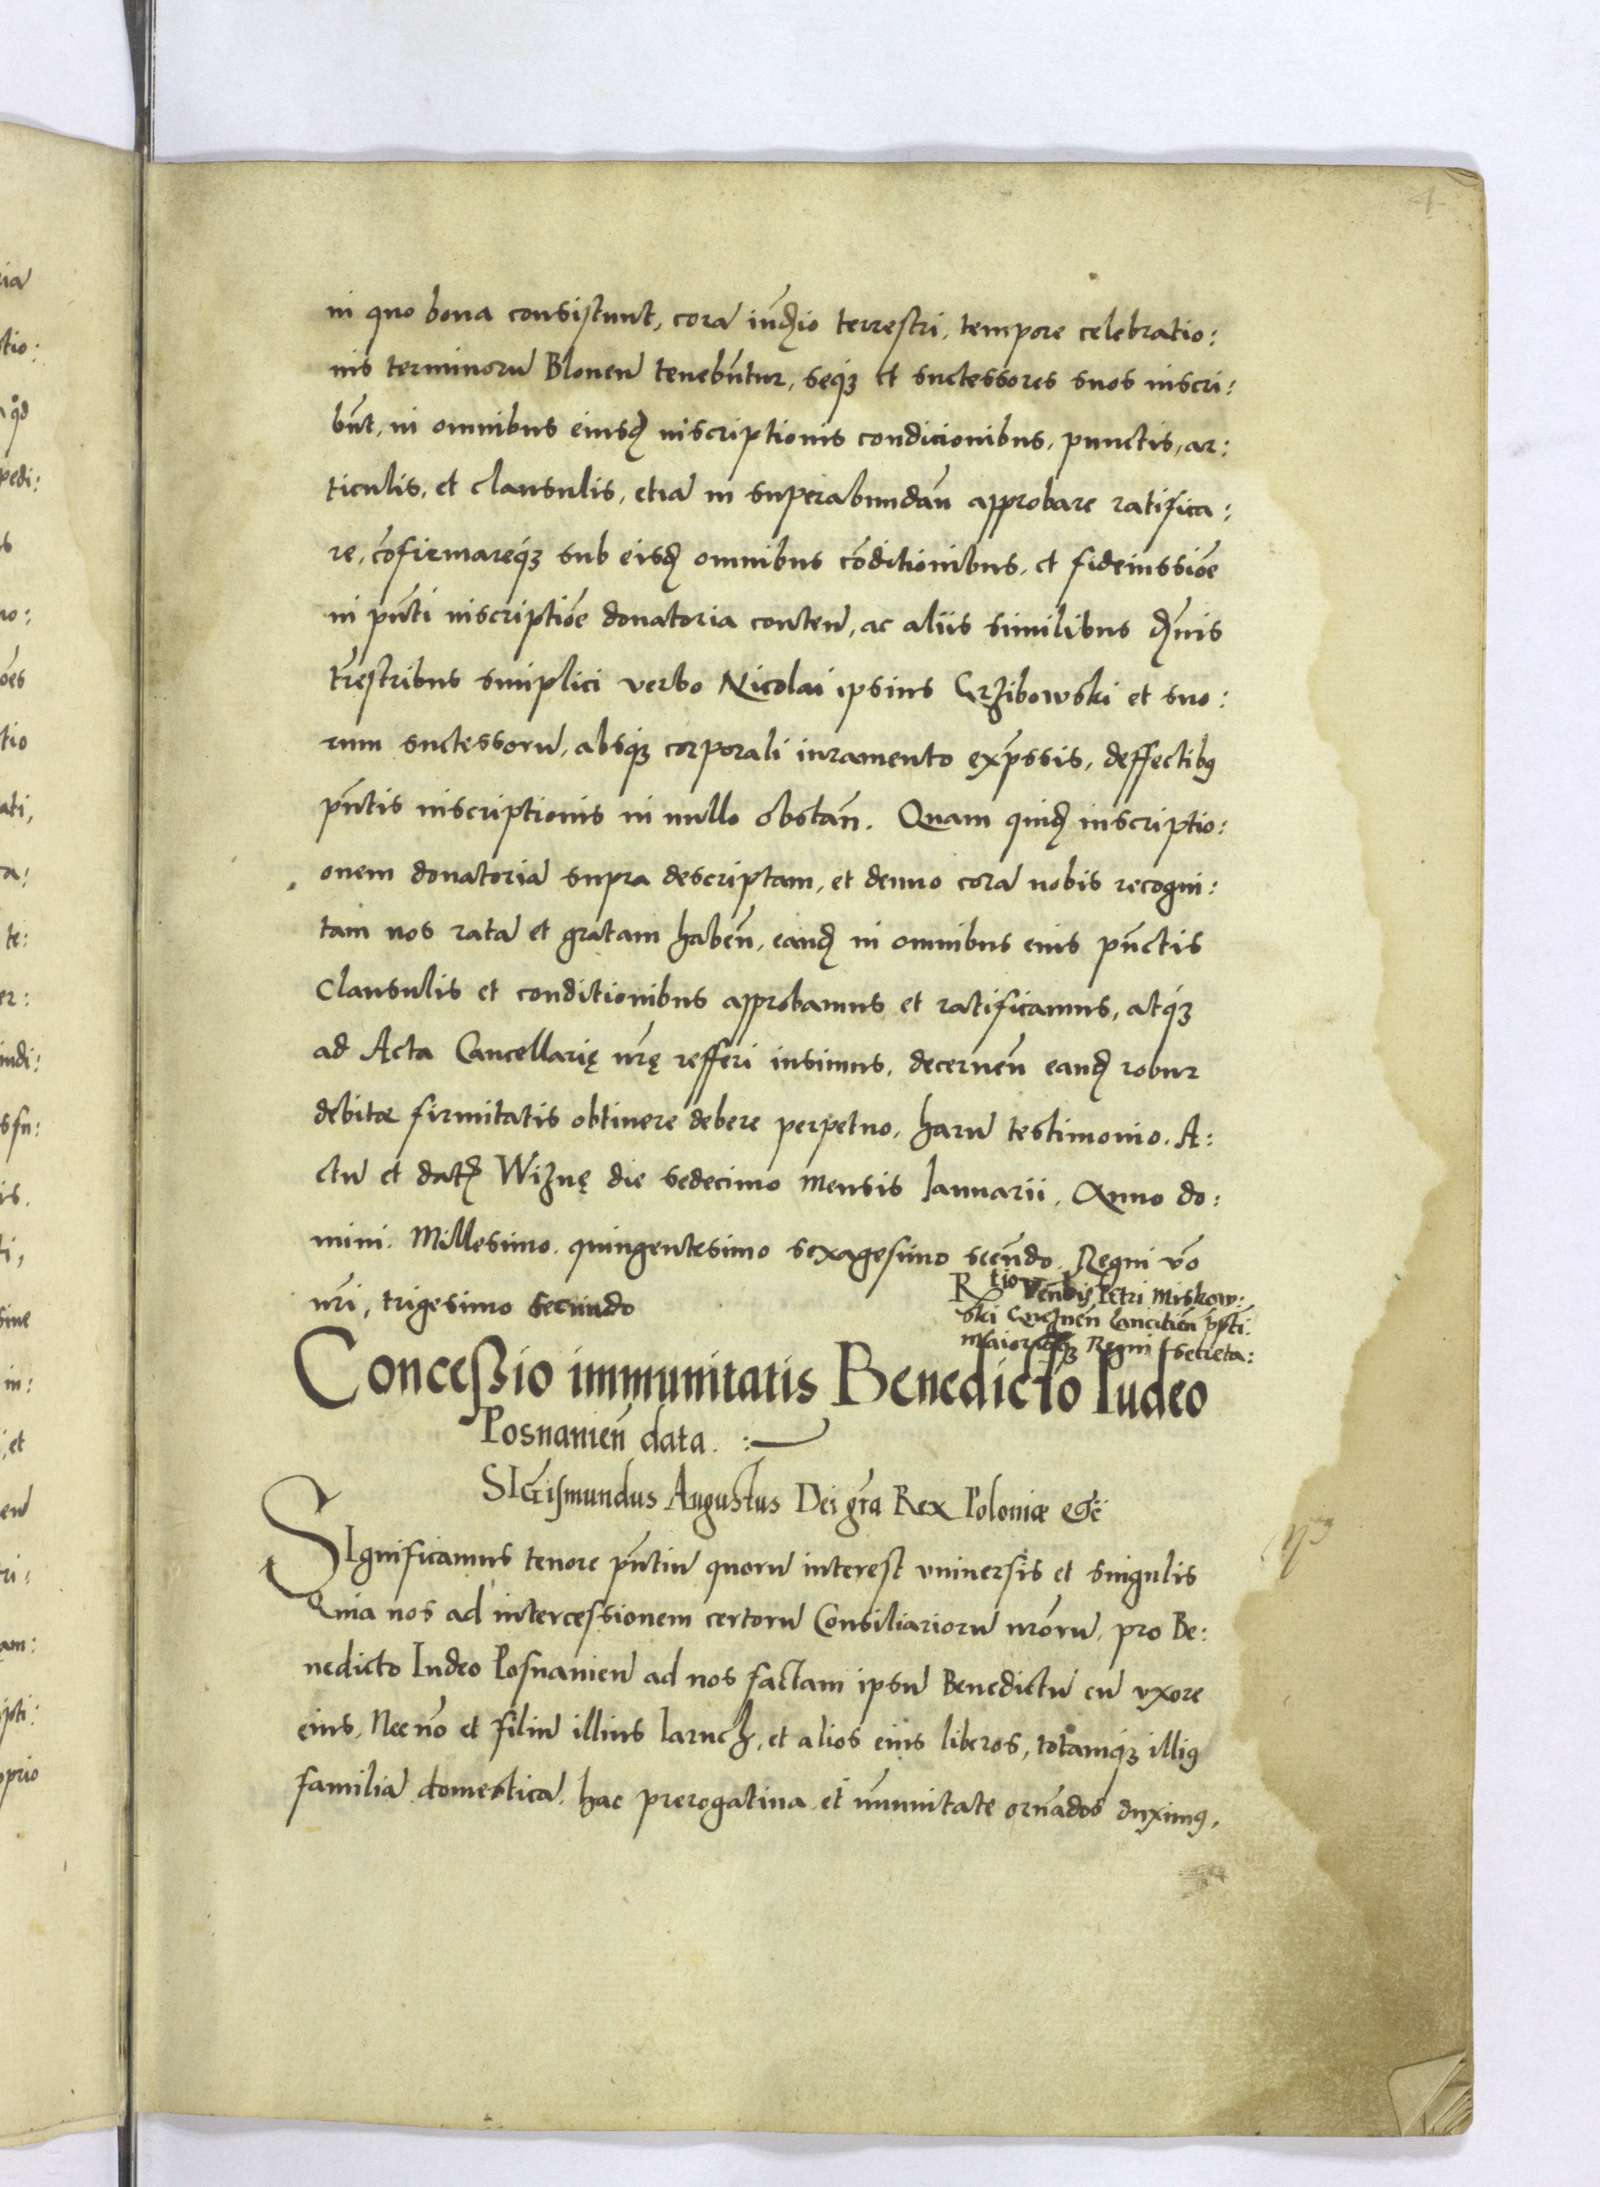 4
in quo bona consistunt, corã iud̃io terrestri, tempore celebratio:
nis terminorũ Blonen̄ tenebũtur, seq́ꝫ et suctessores suos inscri:
bũt, in omnibus eiusđ inscriptionis condicionibus, punctis, ar:
ticulis, et clausulis, etiã in superabundañ approbare ratifica:
re, cõfirmareq́ꝫ sub eisđ omnibus cõditionibus, et fideiussiõe
in pñti inscriptiõe donatoria conteñ, ac aliis similibus
tr̃estribus simplici verbo Nicolai ipsius Grzibowski et suo:
rum suctessorũ, absq́ꝫ corporali iuramento exp̃ssis, deffectibꝰ
pñtis inscriptionis in nullo obstañ. Quam quiđ inscriptio:
onem donatoriã supra descriptam, et denuo corã nobis recogni:
tam nos ratã et gratam habeñ, eanđ in omnibus eius pũctis
Clausulis et conditionibus approbamus et ratificamus, atq́ꝫ
ad Acta Cancellarię nr̃ę refferi iusimus, decerneñ eanđ robur
debitæ firmitatis obtinere debere perpetuo, harũ testimonio. A:
ctũ et datđ Wiznę die sedecimo mensis Ianuarii, Anno do:
mini. Millesimo. quingentesimo sexagesimo secũdo, Regni vo
nr̃i, trigesimo secundo
Rtio Veñbis Petri Miskow:
ski Gneznẽn Lancitiẽn p̃pti:
Maiorisq́ꝫ Regni secreta:
Conceßio immunitatis Benedicto Iudeo
Posnanień data. :—
SIGismundus Augustus Dei gr̃a Rex Poloniæ etc̃
SIgnificamus tenore pñtiũ quorũ interest vniuersis et singulis
Quia nos ad intercessionem certorũ Consiliariorũ nr̃orũ, pro Be:
nedicto Iudeo Posnanieñ ad nos factam ipsũ Benedictũ cũ vxore
eius, Necnõ et filiũ illius Iaruch, et alios eius liberos, totamq́ꝫ illiꝰ
familiã domesticã, hac prerogatiua et im̃unitate ornãdos duximꝰ,